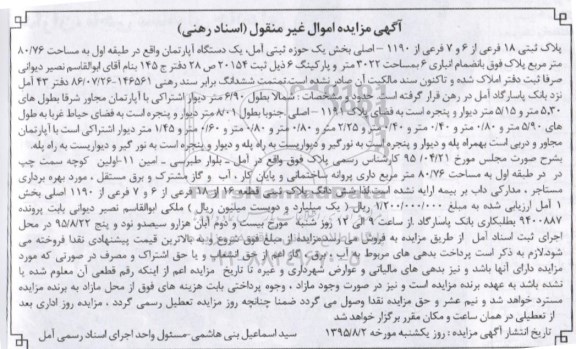 آگهی مزایده اموال غیر منقول (اسناد رهنی)
پلاک ثبتی ۱۸ فرعی از ۶ و ۷ فرعی از ۱۱۹۰ – اصلی بخش یک حوزه ثبتی آمل، یک دستگاه آپارتمان واقع در طبقه اول به مساحت ۸۰/۷۶
متر مربع پلاک فوق بانضمام انباری ۶ بمساحت ۳۰۲۲ متر و پارکینگ ۶ ذیل ثبت ۲۰۱۵۴ ص ۲۸ دفتر ج ۱۴۵ بنام آقای ابوالقاسم نصیر دیوانی
صرفا ثبت دفتر املاک شده و تاکنون سند مالکیت آن صادر نشده است تمامت ششدانگ برابر سند رهنی ۱۴۶۵۶۱-۸۶/۰۷/۲۶ دفتر ۴۳ آمل
نزد بانک پاسارگاد آمل در رهن قرار گرفته است. حدود و مشخصات : شمالا بطول ۶/۹۰ متر دیوار اشتراکی با آپارتمان مجاور شرقا بطول های
۵,۳۰ متر و ۵/۱۵ متر دیوار و پنجره است به فضای پلاک ۱۱۹۱ – اصلی جنوبا بطول ۸/۰۱ متر دیوار و پنجره است به فضای حیاط غربا به طول
های ۵/۹۰ متر و ۰/۸۰ متر و ۰/۴۰ متر و ۰/۴۰ متر و ۲/۲۵ متر و ۰/۸۰ متر و ۰/۸۰ متر و ۰/۶۰ متر و ۱/۴۵ متر دیوار اشتراکی است با آپارتمان
مجاور و دربی است بهمراه پله و دیوار و پنجره است به نورگیر و دیواریست به راه پله و دیوار و پنجره است به نور گیر و دیواریست به راه پله.
بشرح صورت مجلس مورخ ۹۵/۰۴/۲۱ کارشناس رسمی پلاک فوق واقع در آمل – بلوار طبرسی – امین ۱۱-اولین کوچه سمت چپ
در در طبقه اول به مساحت ۸۰/۷۶ متر مربع داری پروانه ساختمانی و پایان کار ، آب و گاز مشترک و برق مستقل ، مورد بهره برداری
مستاجر ، مدارکی داب بر بیمه ارایه نشده است لذا شش دانگ پلاک ثبتی قطعه ۱۶ از ۱۸ فرعی از ۶ و ۷ فرعی از ۱۱۹۰ اصلی بخش
۱ آمل ارزیابی شده به مبلغ ۱/۲۰۰/۰۰۰/۰۰۰ ریال ( یک میلیارد و دویست میلیون ریال ) ملکی ابوالقاسم نصیر دیوانی بابت پرونده
۹۴۰۰۸۸۷ بطلبکاری بانک پاسارگاد از ساعت ۹ الی ۱۲ روز شنبه مورخ بیست و دوم آبان هزارو سیصدو نود و پنج ۹۵/۸/۲۲ در محل
اجرای ثبت اسناد آمل از طریق مزایده به فروش می رسد مزایده از مبلغ فوق شروع و به بالاترین قیمت پیشنهادی نقدا فروخته می
شودلازم به ذکر است پرداخت بدهی های مربوط به آب ، برق ، گاز اعم از حق انشعاب و یا حق اشتراک و مصرف در صورتی که مورد
مزایده دارای آنها باشد و نیز بدهی های مالیاتی و عوارض شهرداری و غیره تا تاریخ مزایده اعم از اینکه رقم قطعی آن معلوم شده یا
نشده باشد به عهده برنده مزایده است و نیز در صورت وجود مازاد ، وجوه پرداختی بابت هزینه های فوق از محل مازاد به برنده مزایده
مسترد خواهد شد و نیم عشر و حق مزایده نقدا وصول می گردد ضمنا چنانچه روز مزایده تعطیل رسمی گردد ، مزایده روز اداری بعد
از تعطیلی در همان ساعت و مکان مقرر برگزار خواهد شد
تاریخ انتشار آگهی مزایده : روز یکشنبه مورخه ۱۳۹۵/۸/۲ سید اسماعیل بنی هاشمی-مسئول واحد اجرای اسناد رسمی آمل